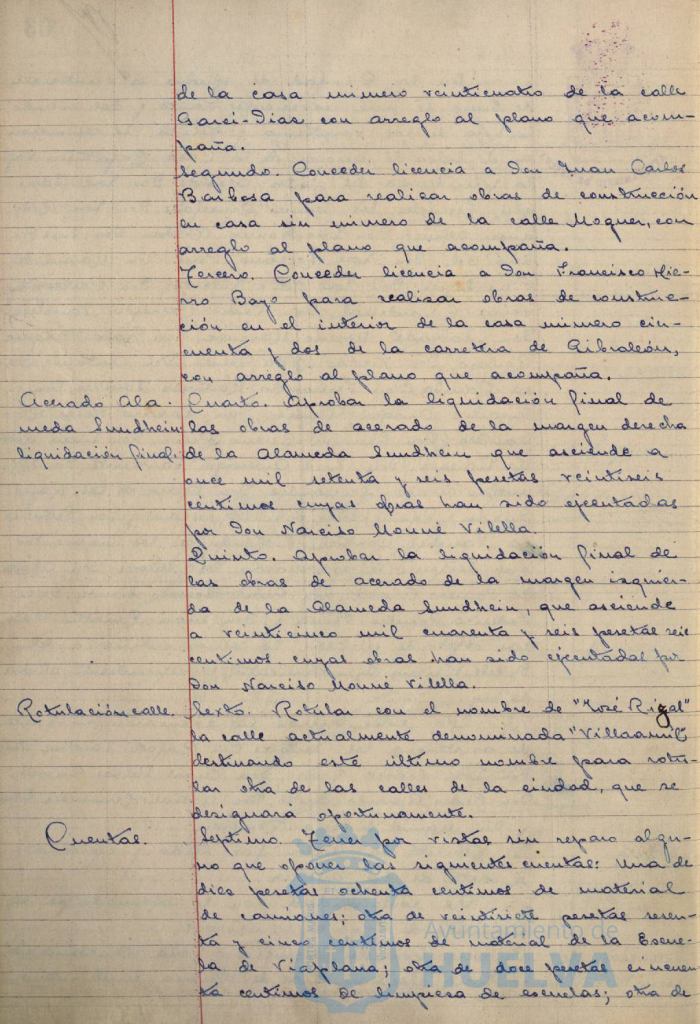 de la casa número veinticuatro de la calle
Garci-Dias con arreglo al plano que acom-
paña.
Segundo. Conceder licencia a Don Juan Carlos
Barbosa para realizar obras de construcción
en casa sin número de la calle Moguer, con
arreglo al plano que acompaña.
Tercero. Conceder licencia a Don Francisco Hie-
rro Bayo para realizar obras de construc-
ción en el interior de la casa número cin-
cuenta y dos de la carretera de Gibraleón,
con arreglo al plano que acompaña.
Acerado Ala-
meda Sundhein
liquidación final.
Cuarto. Aprobar la liquidación final de
las obras de acerado de la margen derecha
de la Alameda Sundhein que asciende a
once mil setenta y seis pesetas veintiseis
céntimos cuyas obras han sido ejecutadas
por Don Narciso Monné Vilella.
Quinto. Aprobar la liquidación final de
las obras de acerado de la margen izquier-
da de la Alameda Sundhein, que asciende
a veinticinco mil cuarenta y seis pesetas seis
centimos cuyas obras han sido ejecutadas por
Don Narciso Monné Vilella.
Rotulación calle.
Sexto. Rotular con el nombre de "José Rizal"
la calle actualmente denominada "Villaamil"
destinando este último nombre para rotu-
lar otra de las calles de la ciudad, que se
designará oportunamente.
Cuentas.
Septimo. Tener por vistas sin reparo algu-
no que oponer las siguientes cuentas: Una de
dies pesetas ochenta centimos de material
de camiones; otra de veintisiete pesetas seten-
ta y cinco centimos de material de la Escue-
la de Viaplana; otra de doce pesetas cincuen-
ta centimos de limpiesa de escuelas; otra de
Ayuntamiento de
HUELVA